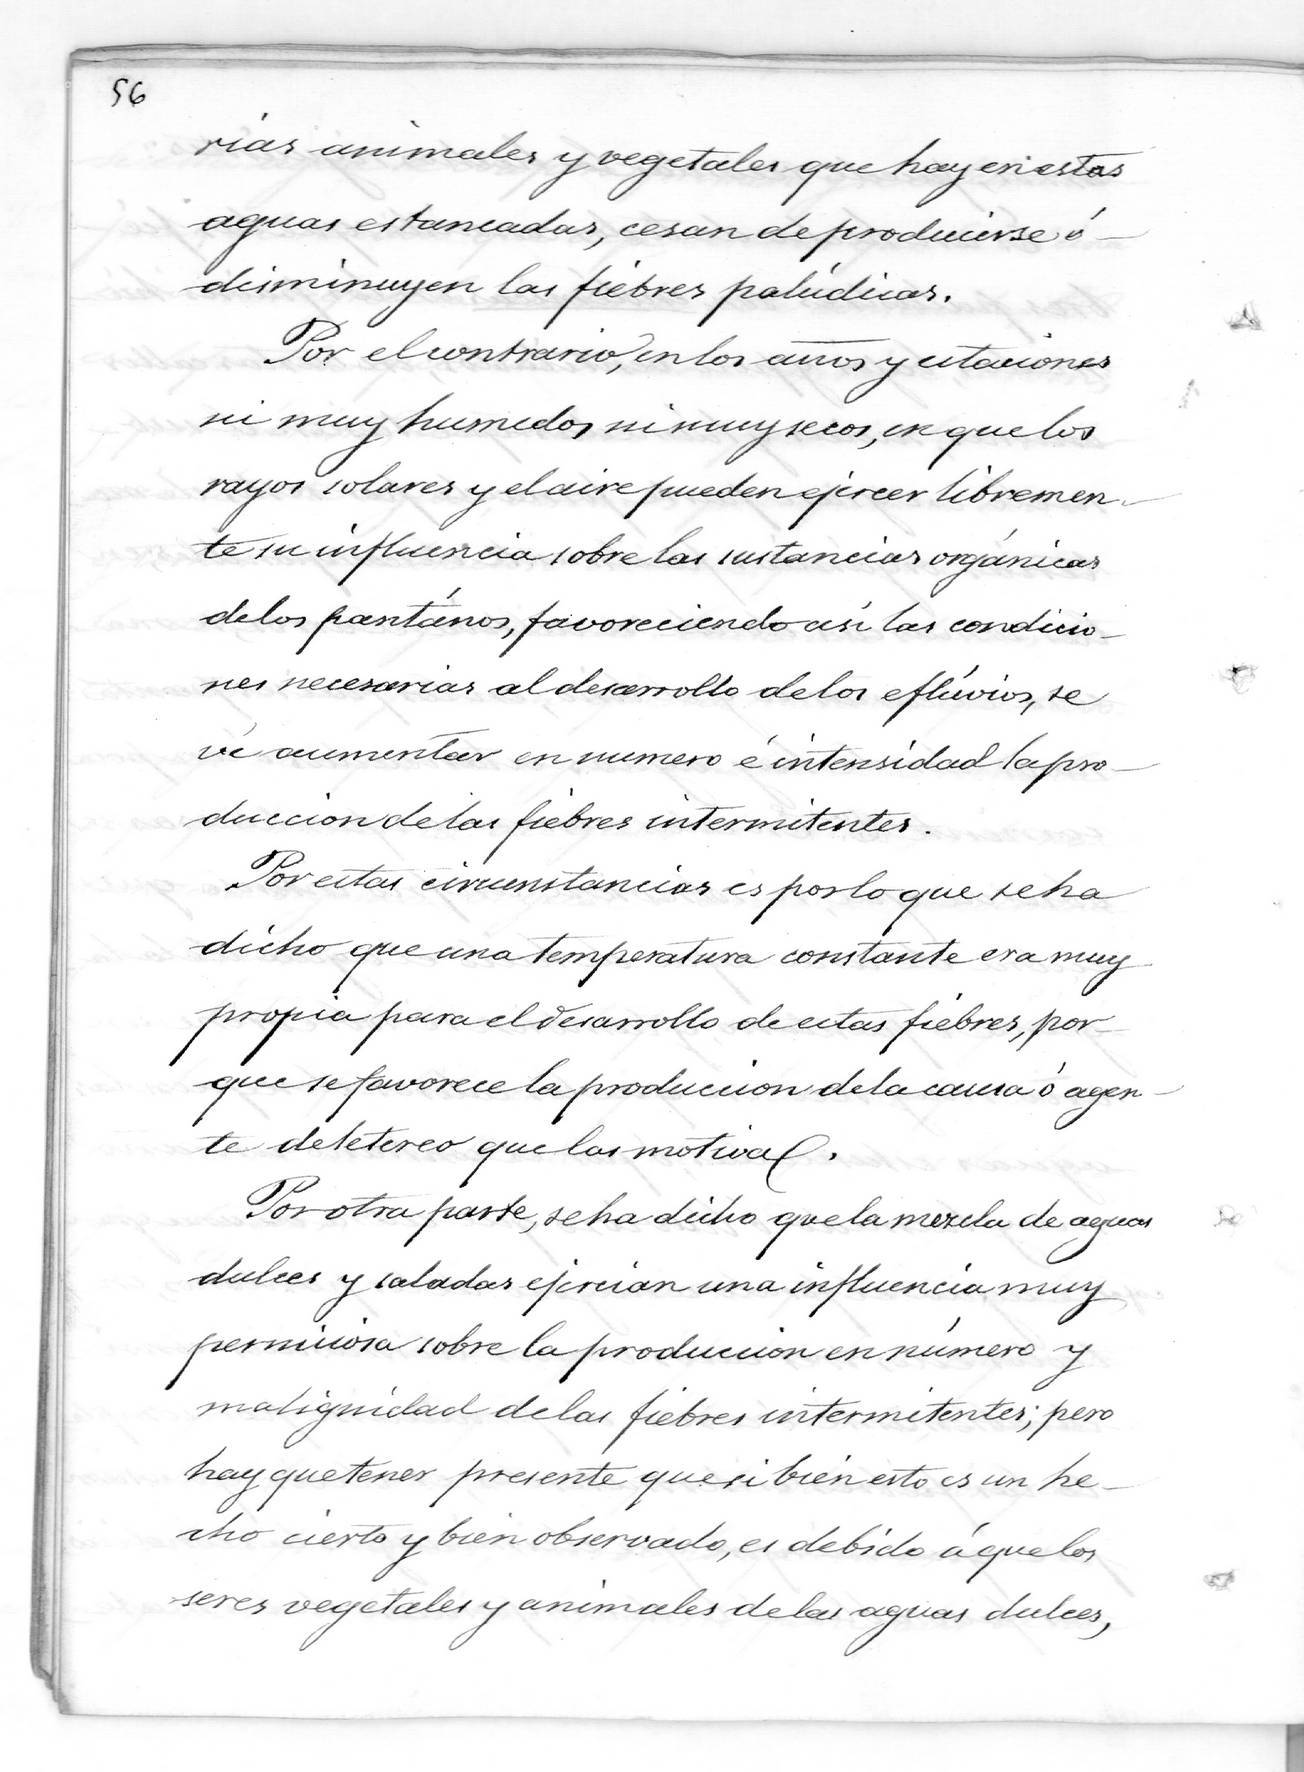 56
rias animales y vegetales que hay en estas
aguas estancadas, cesan de producirse ó
disminuyen las fiébres palúdicas.
Por el contrario, en los años y estaciones
ni muy humedos ni muy secos, en que los
rayos solares y el aire pueden ejercer libremen-
te su influencia sobre las sustancias orgánicas
de los pantános, favoreciendo así las condicio-
nes necesarias al desarrollo de los eflúvios, se
vé aumentar en numero é intensidad la pro-
duccion de las fiébres intermitentes.
Por estas circunstancias es por lo que se ha
dicho que una temperatura constante era muy
propia para el desarrollo de estas fiébres, por-
que se favorece la produccion de la causa ó agen-
te deletereo que las motiva.
Por otra parte, se ha dicho que la mezcla de aguas
dulces y saladas ejercian una influencia muy
perniciosa sobre la produccion en número y
malignidad de las fiebres intermitentes; pero
hay que tener presente que si bien esto es un he-
cho cierto y bien observado, es debido á que los
seres vegetales y animales de las aguas dulces,